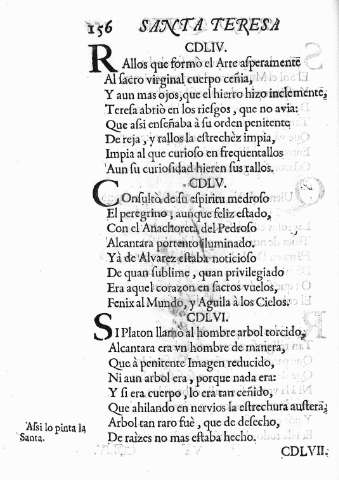 156 SANTA TERESA
CDLIV.
RAllos que formò el Arte asperamente
Al sacro virginal cuerpo ceñia,
Y aun mas ojos, que el hierro hizo inclemente,
Teresa abriò en los riesgos, que no avia:
Que assi enseñaba à su orden penitente
De reja, y rallos la estrechèz impia,
Impia al que curioso en frequentallos
Aun su curiosidad hieren sus rallos.
CDLV.
COnsultò de su espiritu medroso
El peregrino, aunque feliz estado,
Con el Anachoreta del Pedroso
Alcantara portento iluminado.
Yà de Alvarez estaba noticioso
De quan sublime, quan privilegiado
Era aquel corazon en sacros vuelos,
Fenix al Mundo, y Aguila à los Cielos.
CDLVI.
SI Platon llamò al hombre arbol torcido,
Alcantara era vn hombre de manera,
Que à penitente Imagen reducido,
Ni aun arbol era, porque nada era:
Y si era cuerpo, lo era tan ceñido,
Que ahilando en nervios la estrechura austera,
Arbol tan raro fuè, que de desecho,
De raìzes no mas estaba hecho.
Assi lo pinta la
Santa.
CDLVII.